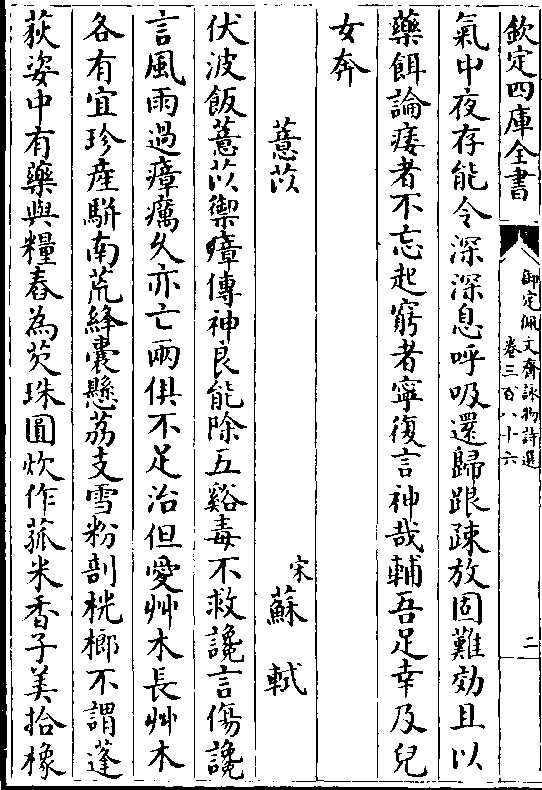 欽定四庫全書
御定佩文齋詠物詩選
卷三百八十六
二
氣中夜存能令深深息呼吸還歸跟疎放固難効且以
藥餌論痿者不忘起窮者寧復言神哉輔吾足幸及兒
女奔
薏苡
宋蘇軾
伏波飯薏苡禦瘴傳神良能除五谿毒不救讒言傷讒
言風雨過瘴癘久亦亡兩俱不足治但愛艸木長艸木
各有宜珍產駢南荒絳囊懸荔支雪粉剖桄榔不謂蓬
荻姿中有藥與糧舂為芡珠圓炊作菰米香子美拾橡